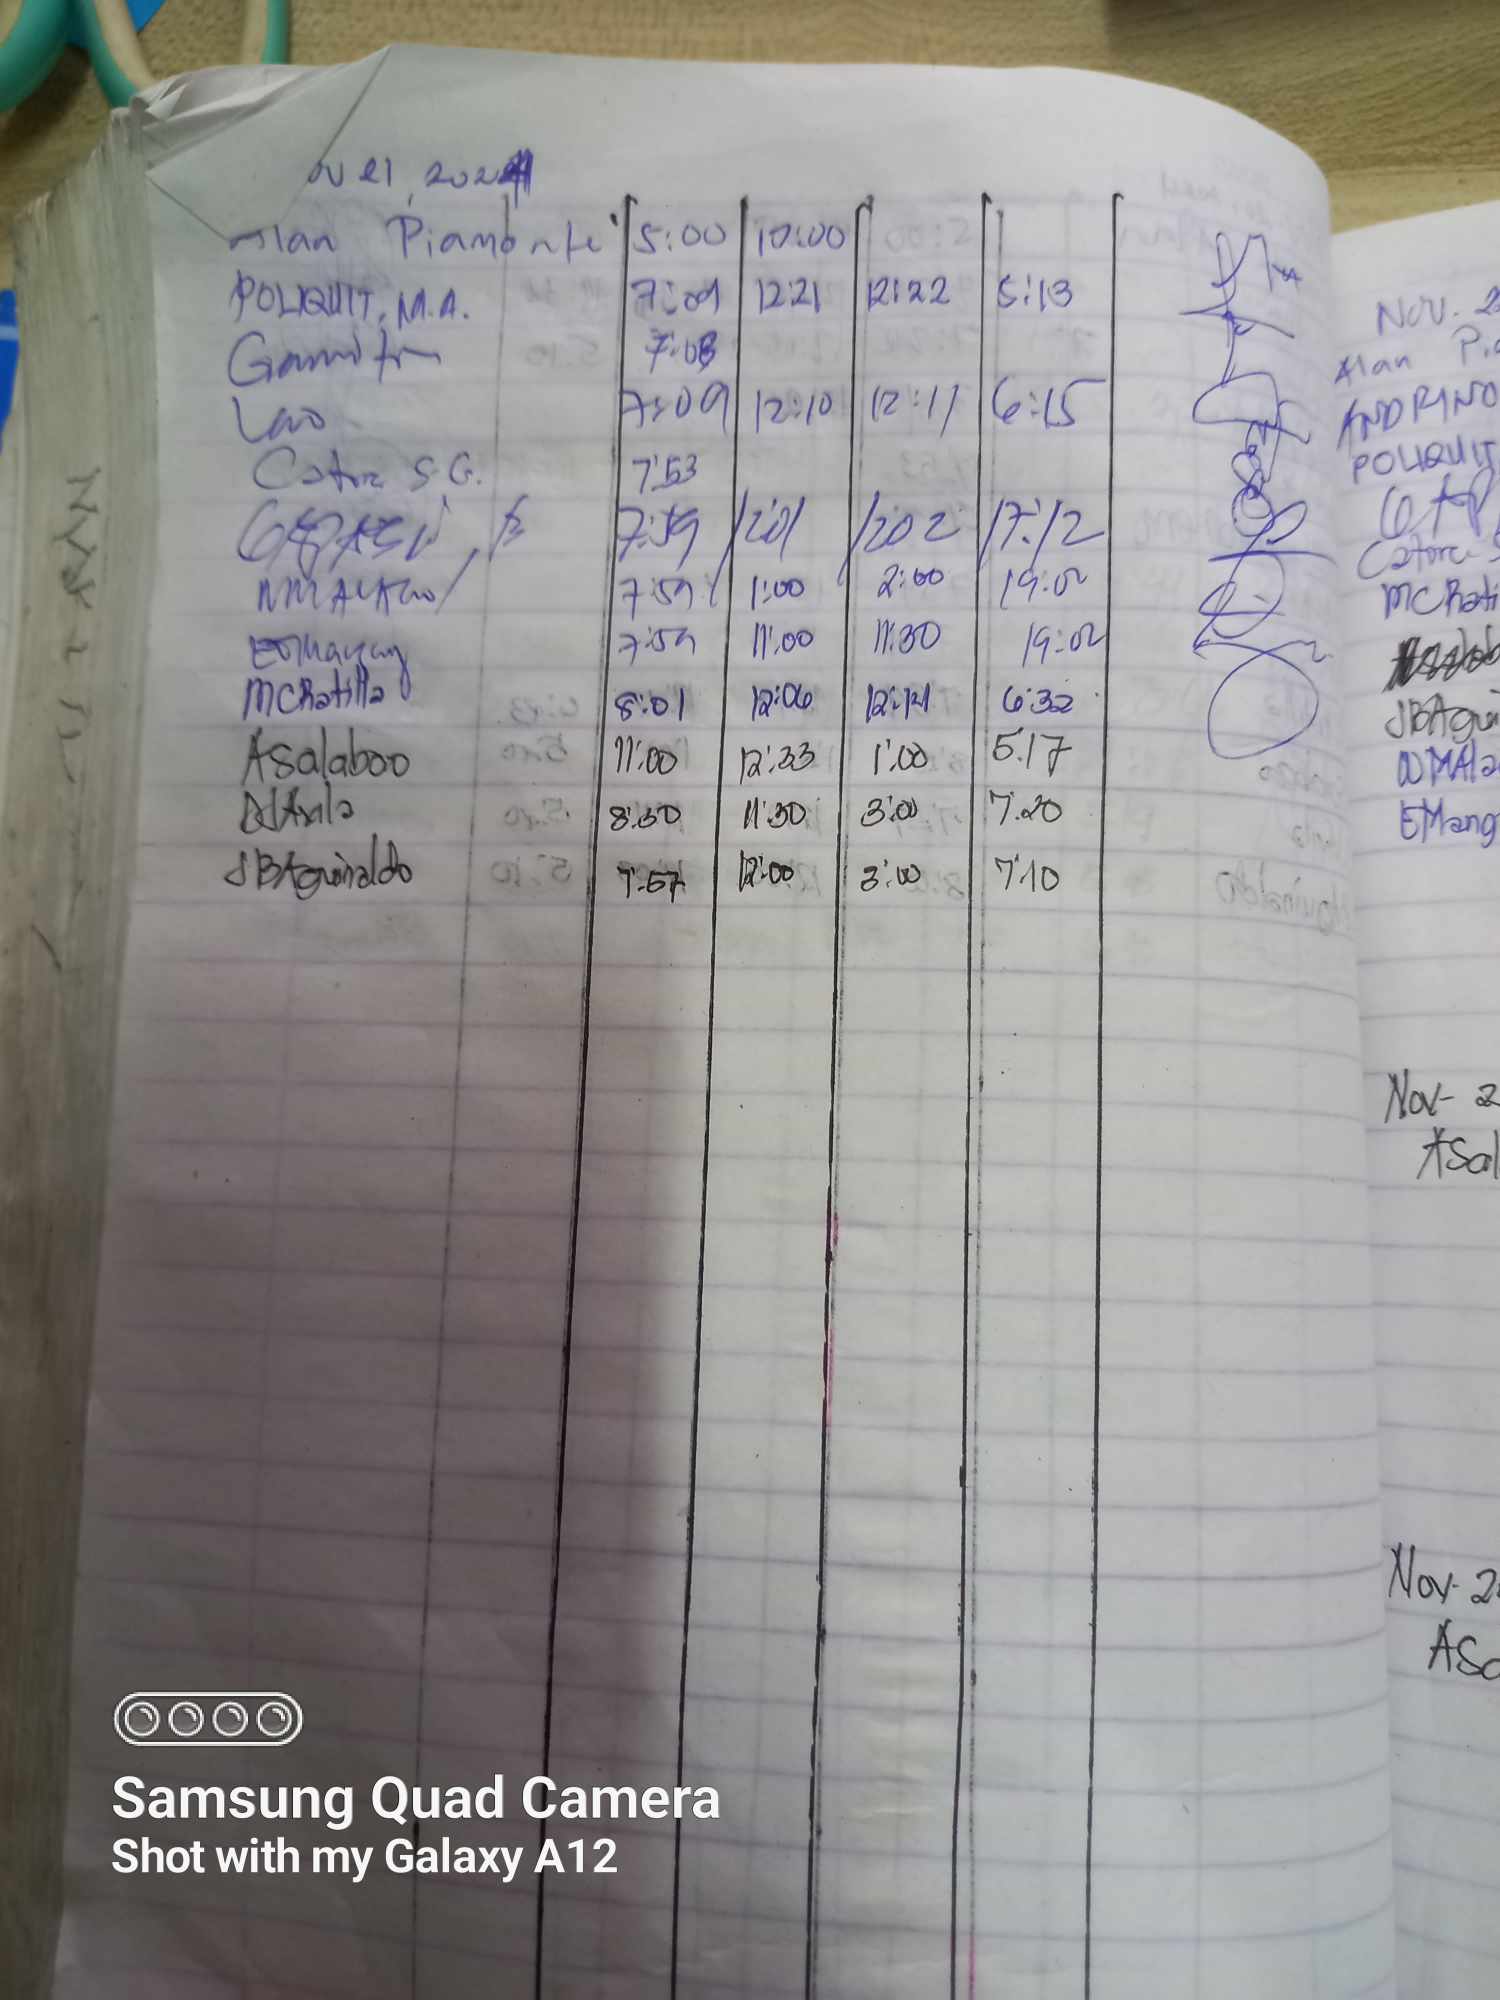 21, 2024
Alan Piamonte 5:00 10:00
POLIQUIT, M.A. 7:09 12:21 12:22 5:13
7:08
Lao 7:09 12:10 12:11 6:15
Catore S.G. 7:53
7:59 1201 1202 17:12
7:59 1:00 2:00 19:02
7:59 11:00 11:30 19:02
MCRatilla 8:01 12:06 12:14 6:32
ASalaboo 11:00 12:33 1:00 5:17
8:30 11:30 3:00 7:20
JBAguinaldo 7:57 12:00 3:00 7:10
Nov. 2
Alan P
ANDRINO
POLIQUIT
Catore S
MCRati
JBAgui
EMang
Nov- 2
ASal
Nov- 2
ASa
Samsung Quad Camera
Shot with my Galaxy A12